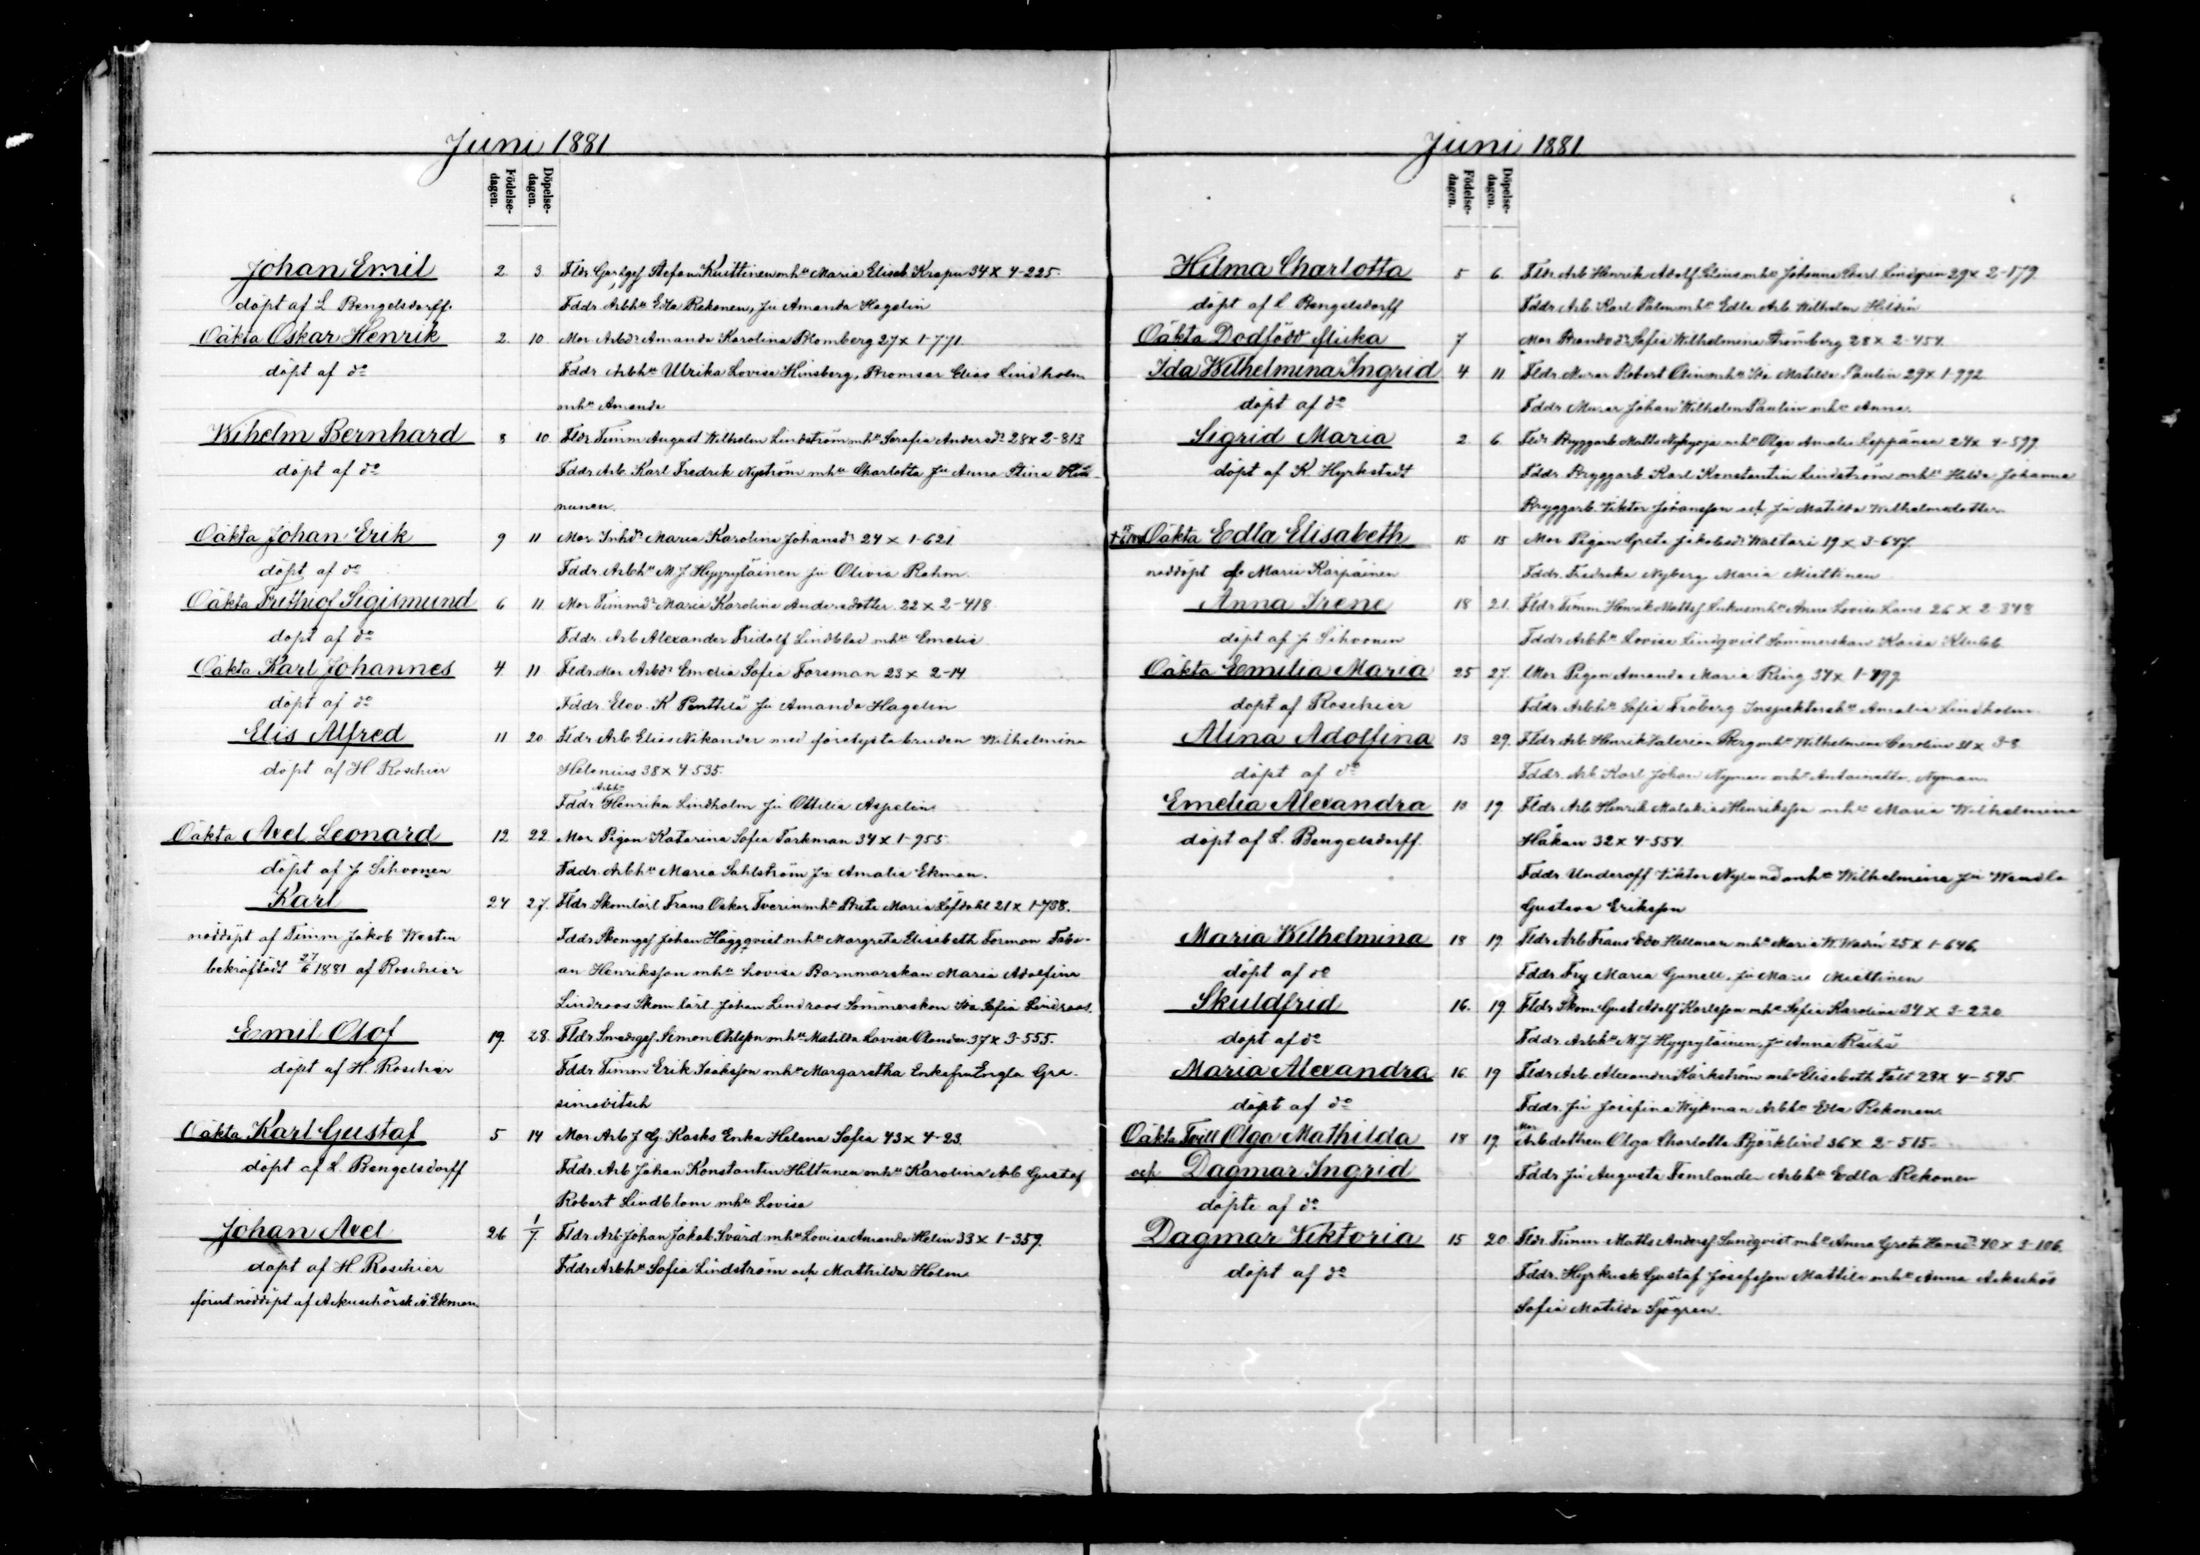 Juni 1881
Födelse-dagen.
Döpelse-dagen.
Johan Emil 2. 3. Fldr. Garfgesf Stefan Kuittinen mhu Maria Elisab Krapu 34 x 4-225.
döpt af L Bengelsdorff. Fddr. Arbhu Edla Rekonen, Ju Amanda Hagelin
Oäkta Oskar Henrik 2. 10. Mor Arbdr Amanda Karolina Blomberg 27 x 1-771.
döpt af do Fddr Arbhu Ulrika Lovisa Hinsberg, Bromsar Elias Lindholm
mhu Amanda
Wihelm Bernhard 8 10. Fldr. Timm August Wilhelm Lindström mhu Serafia Andersdr 28 x 2-813
döpt af do Fddr. Arb. Karl Fredrik Nyström mhu Charlotta Ju Anna Stina
nunen.
Oäkta Johan Erik 9 11 Mor Inhdr Maria Karolina Johansdr 24 x 1-621
döpt af do Fddr. Arbhu M J Hyyryläinen Ju Olivia Rahm.
Oäkta Frithiof Sigismund 6 11. Mor Timmdr Maria Karolina Andersdotter 22 x 2-418.
döpt af do Fddr. Arb Alexander Fridolf Lindblad mhu Emelie
Oäkta Karl Johannes 4 11 Fldr. Mor Arbdr Emelia Sofia Forsman 23 x 2-14
döpt af do Fddr. Elev. K Penttilä Ju Amanda Hagelin
Elis Alfred 11 20 Fldr Arb Elias Nikander med förelysta bruden Wilhelmina
döpt af H Roschier Helenius 38 x 4-535.
Fddr Arbhu Henrika Lindholm Ju Ottilia Aspelin
Oäkta Axel Leonard 12 22. Mor Pigan Katarina Sofia Tarkman 34 x 1-955
döpt af J Sihvonen Fddr. Arbhu Maria Sahlström Ju Amalia Ekman.
Karl 24 27. Fldr Skomlärl Frans Oskar Tverin mhu Brita Maria Löfdahl 21 x 1-738.
nöddöpt af Timm Jakob Westin Fddr Skomgesf Johan Häggqvist mhu Margreta Elisabeth Forman Fabi-
bekräftadt 27/6 1881 af Roschier an Henriksson mhu Lovisa Barnmorskan Maria Adolfina
Lindroos Skomlärl Johan Lindroos Sömmerskan Ida Sofia Lindroos
Emil Olof 19. 28. Fldr Smedsgesf Simon Ohlsson mhu Matilda Lovisa Olander 37 x 3-555.
döpt af H. Roschier Fddr Timm Erik Isaksson mhu Margaretha Enkefru Engla Gra-
simovitsch
Oäkta Karl Gustaf 5 14 Mor Arb J G Kasks Enka Helena Sofia 43 x 4-23.
döpt af L. Bengelsdorff Fddr. Arb Johan Konstantin Hiltunen mhu Karolina Arb Gustaf
Robert Lindblom mhu Lovisa
Johan Axel 26 1/7 Fldr. Arb Johan Jakob Svärd mhu Lovisa Amanda Helin 33 x 1-359.
döpt af H Roschier Fddr Arbhu Sofia Lindström och Mathilda Holm
förut nöddöpt af Ackuschörsk A. Ekman.
Juni 1881
Födelse-dagen.
Döpelse-dagen.
Hilma Charlotta 5 6. Fldr Arb Henrik Adolf Elias mhu Johanna Charl. Lindgren 29 x 2-179
döpt af L Bengelsdorff Fddr Arb Karl Palen mhu Edla Arb Wilhelm Helsin
Oäkta Dödfödd flicka 7 Mor Brandvdr Sofia Wilhelmina Strömberg 28 x 2-454.
Ida Wilhelmina Ingrid 4 11 Fldr. Murar Robert Olin mhu Ida Matilda Paulin 29 x 1-992
döpt af do Fddr Murar Johan Wilhelm Paulin mhu Anna.
Sigrid Maria 2 6 Fldr Bryggarb Matts Nykyrja mhu Olga Amalia Leppänen 24 x 4-599.
döpt af K. Hyrkstedt Fddr. Bryggarb. Karl Konstantin Lindström mhu Hilda Johanna
Bryggarb Viktor Johansson och Ju Matilda Wilhelmsdotter
Oäkta Edla Elisabeth 15 15 Mor Pigan Greta Jakobsdr Waltari 19 x 3-647.
nöddöpt af Maria Karpainen Fddr. Fredrika Nyberg Maria Miettinen
Anna Irene 18 21. Fldr Timm Henrik Mattsf Lukus mhu Anna Lovisa Lans 26 x 2-348
döpt af J Sihvonen Fddr Arbhu Lovisa Lindqvist Sömmerskan Kaisa Klubb
Oäkta Emilia Maria 25 27. Mor Pigan Amanda Maria Ring 34 x 1-499
döpt af Roschier Fddr. Arbhu Sofia Fröberg Inspektorshu Amalia Lindholm
Alina Adolfina 13 29. Fldr. Arb Henrik Valerian Berg mhu Wilhelmina Carolina 31 x 3-8
döpt af do Fddr. Arb Karl Johan Nyman mhu Antoinetta Nyman
Emelia Alexandra 10 19 Fldr Arb Henrik Malakias Henriksson mhu Maria Wilhelmina
döpt af L. Bengelsdorff. Håkan 32 x 4-554
Fddr Underoff Viktor Nylund mhu Wilhelmina Ju Wendla
Gustava Eriksson
Maria Wilhelmina 18 19 Fldr Arb Frans Edv Hellman mhu Maria W. Wadén 25 x 1-646.
döpt af do Fddr Fry Maria Gunell, Ju Maria Miettinen
Skuldfrid 16. 19 Fldr Skom Gust Adolf Karlsson mhu Sofia Karolina 34 x 3-220
döpt af do Fddr. Arbhu M J Hyyryläinen, Ju Anna Räihä
Maria Alexandra 16. 19 Fldr Arb Alexander Kärkström mhu Elisabeth Fält 28 x 4-595.
döpt af do Fddr. Ju Josefina Wijkman Arbhu Eda Rekonen
Oäkta Tvill Olga Mathilda 18 19 Mor Arbdottren Olga Charlotta Björklind 36 x 2-515-
och Dagmar Ingrid Fddr Ju Augusta Temlander Arbhu Edla Rekonen
döpte af do
Dagmar Viktoria 15 20. Fldr. Timm Matts Andersf Sundqvist mhu Anna Greta Hansdr 40 x 3-106.
döpt af do Fddr. Hyrkusk Gustaf Josefsson Mattila mhu Anna Ackuschös
Sofia Matilda Sjögren.